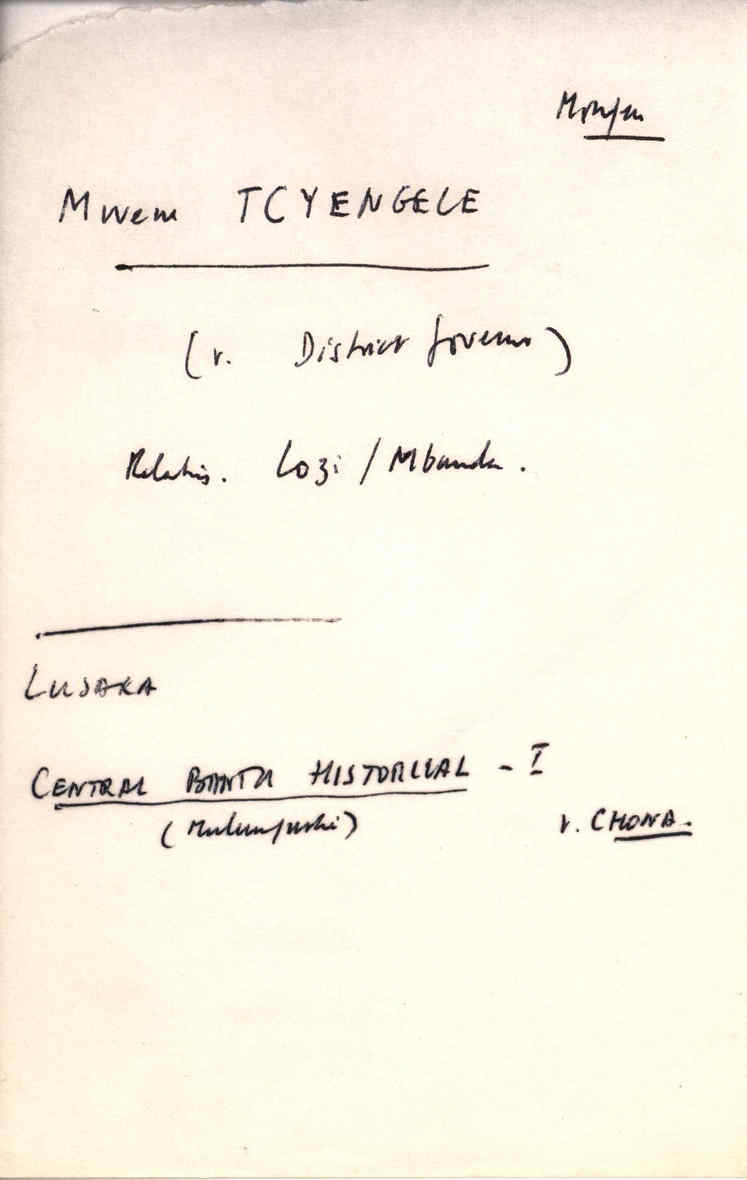 Mwene TCYENGELE
(v. District Governor)
Relatins. Lozi / Mbunda.
LUSAKA
CENTRAL BANTU HISTORICAL - I
(Mulungushi) v. CHONA.